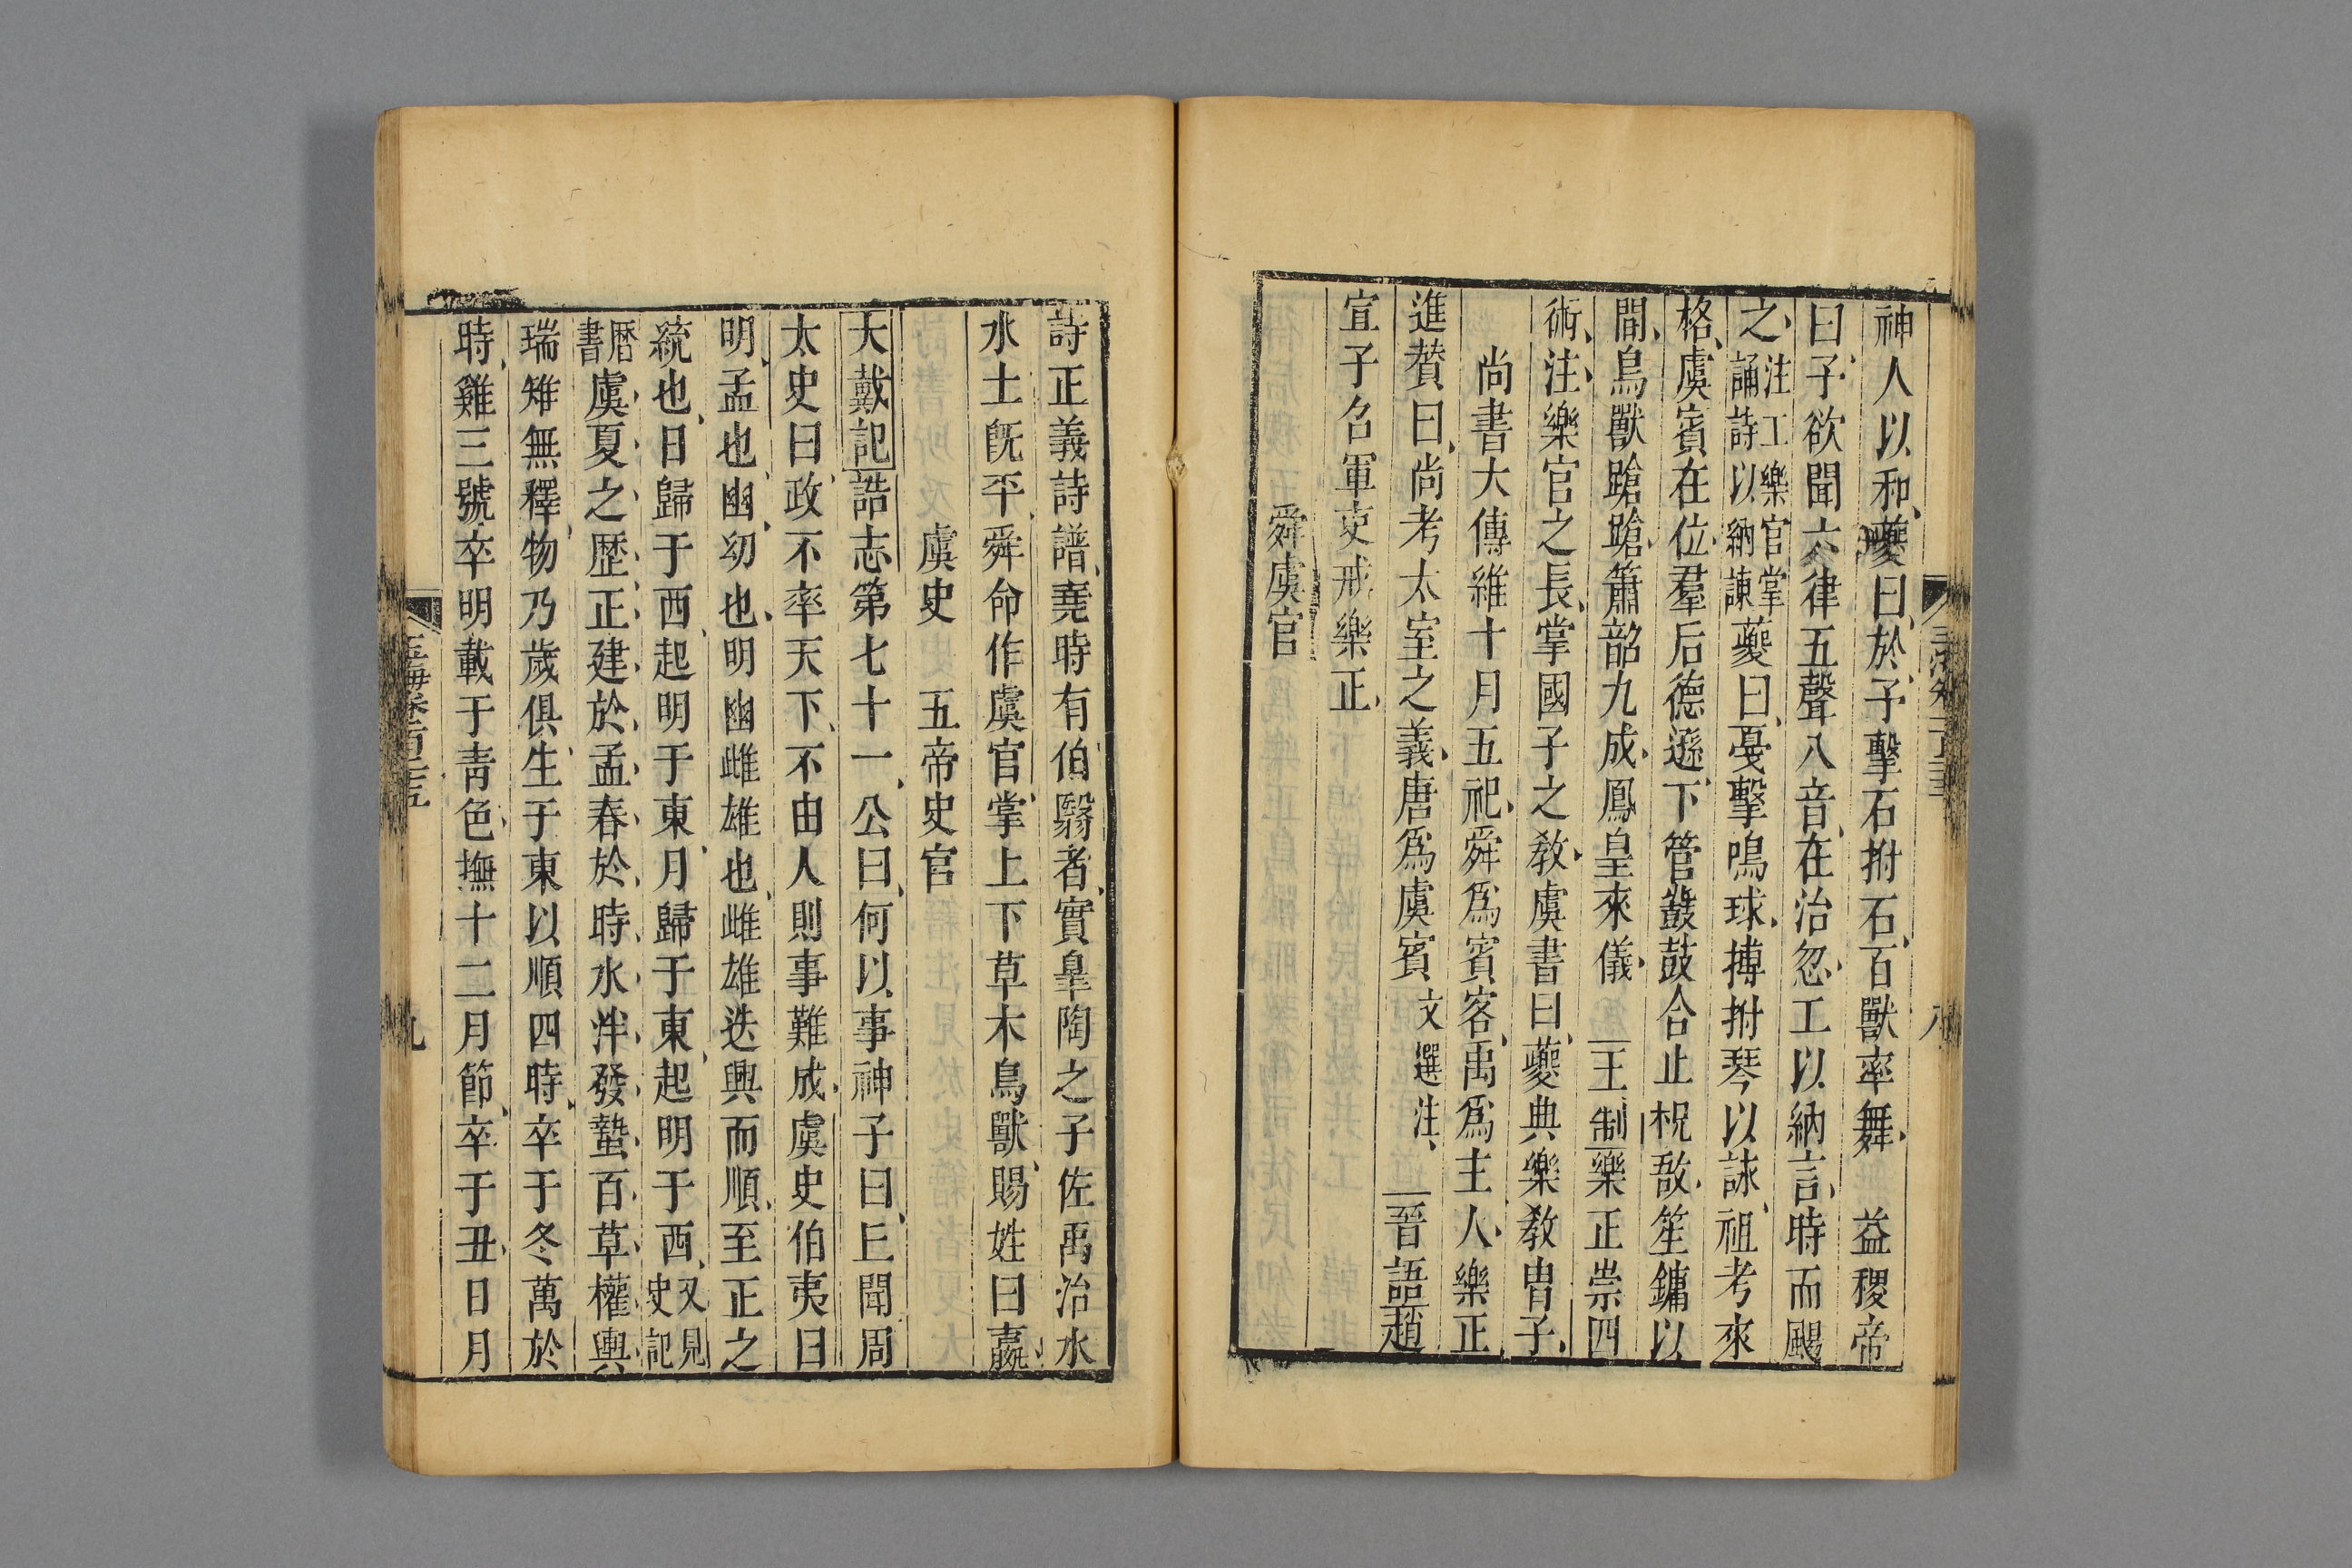 神人以和夔曰於子擊石拊石百獸率舞　益稷帝
曰子欲聞六律五聲八音在治忽工以納言時而颺
之注工樂官掌誦詩以納諫夔曰戞擊鳴球搏拊琴以詠祖考來
格虞賓在位羣后德遜下管鼗鼓合止柷敔笙鏞以
間鳥獸蹌蹌簫韶九成鳳皇來儀　王制樂正崇四
術注樂官之長掌國子之敎虞書曰夔典樂敎胄子
尚書大傳維十月五祀舜爲賓客禹爲主人樂正
進贊曰尚考太室之義唐爲虞賓文選注　晉語趙
宣子名軍吏戒樂正
舜虞官
詩正義詩譜堯時有伯翳者實皐陶之子佐禹治水
水土旣平舜命作虞官掌上下草木鳥獸賜姓曰嬴
虞史　五帝史官
大戴記誥志第七十一公曰何以事神子曰丘聞周
太史曰政不率天下不由人則事難成虞史伯夷曰
明孟也幽幼也明幽雌雄也雌雄迭興而順至正之
統也日歸于西起明于東月歸于東起明于西又見史記
曆書虞夏之歷正建於孟春於時水泮發蟄百草權輿
瑞雉無釋物乃歲俱生于東以順四時卒于冬萬於
時雞三號卒明載于靑色撫十二月節卒于丑日月
玉海卷百二十五
九